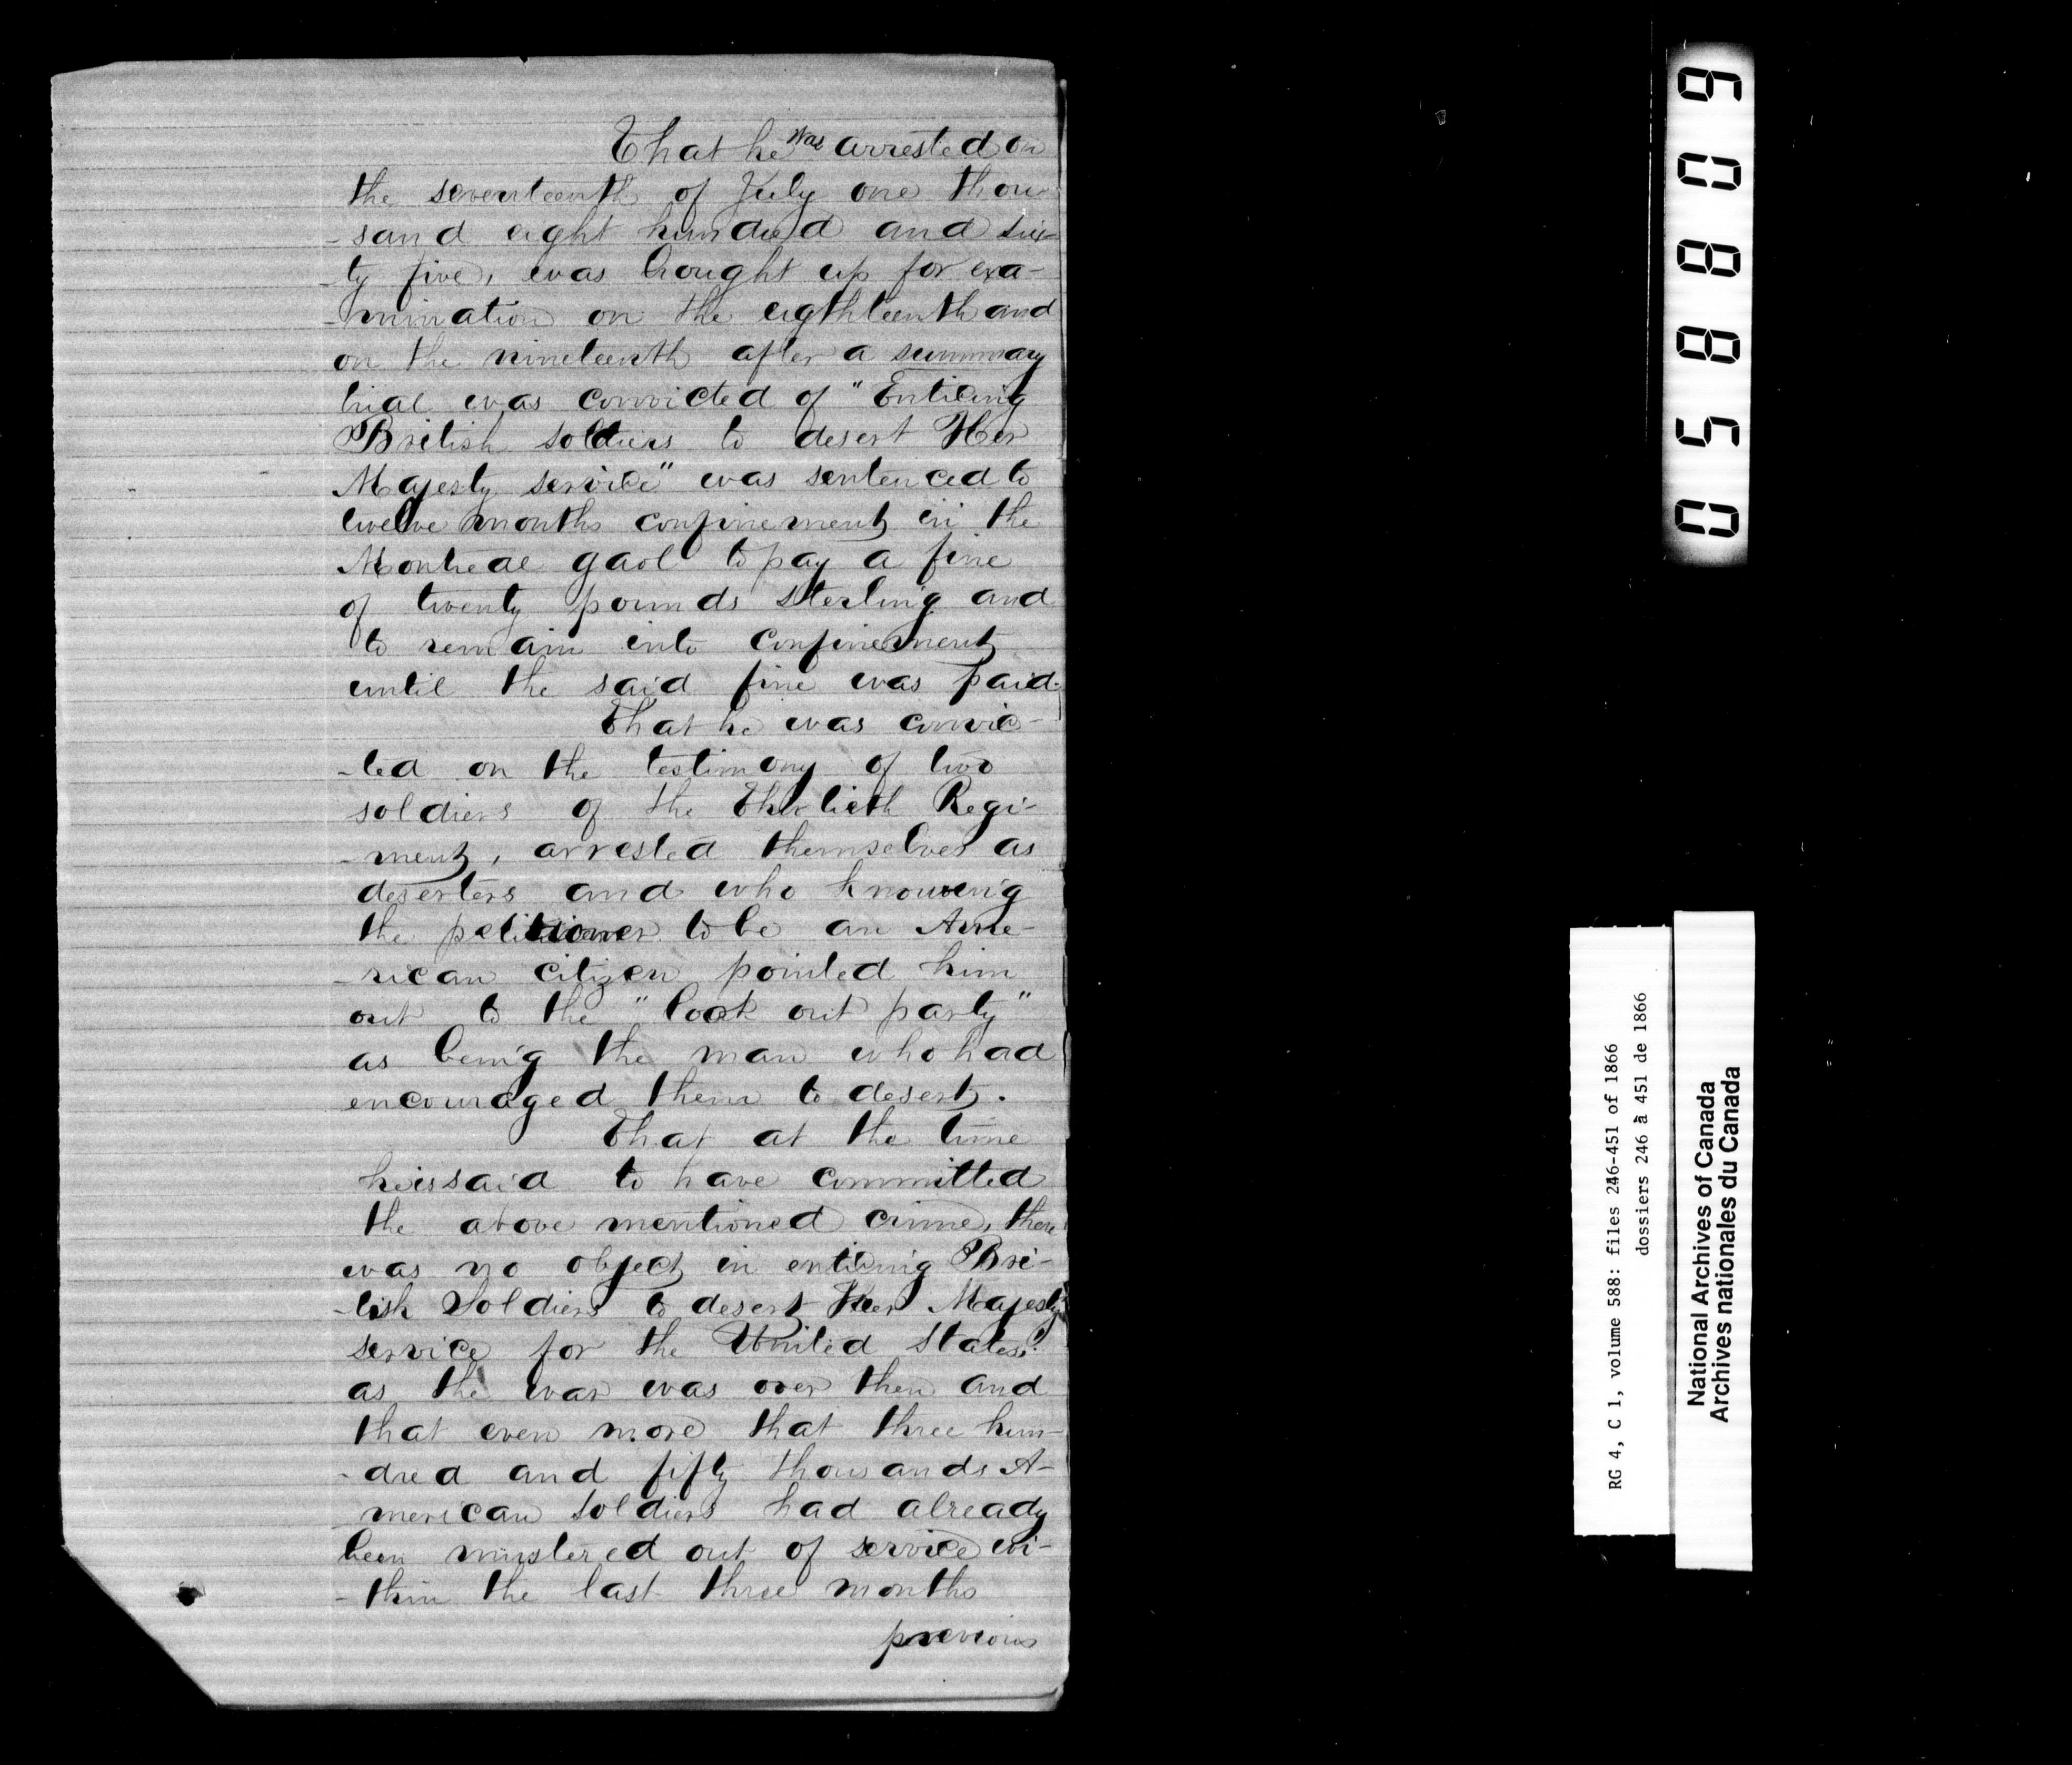 That he was arrested on
the seventeenth of July one thou
-sand eight hundred and six-
-ty five, was bought up for exa-
-mination on the eigthteenth and
on the nineteenth after a summary
trial was convicted of "Enticing
British soldiers to desert Her
Majesty service" was sentenced to
twelve months confinement in the
Montreal gaol to pay a fine
of twenty pounds sterling and
to remain into confinement
until the said fine was paid.
That he was convic-
-ted on the testimony of two
soldiers of the Thirtieth Regi-
-ment, arrested themselves as
deserters and who knowing
the petitioner to be an Ame-
-rican citizen pointed him
out to the "look out party"
as being the man who had
encouraged them to desert.
That at the time
he is said to have committed
the above mentioned crime, there
was no object in enticing Bri-
-tish Soldiers to desert Her Majesty
service for the United States
as the war was over then and
that even more that three hun-
-dred and fifty thousands A-
-merican soldiers had already
been mustered out of service wi-
-thin the last three months
previous
058809
RG 4, C 1, volume 588: files 246-451 of 1866
dossiers 246 à 451 de 1866
National Archives of Canada
Archives nationales du Canada